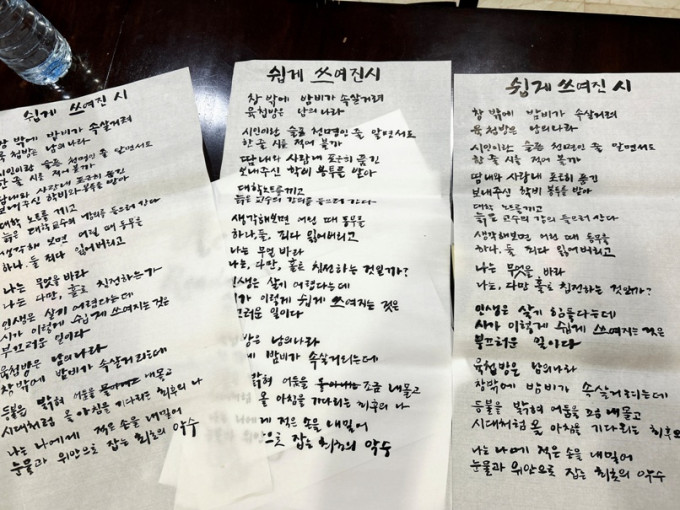 쉽게 쓰여진 시
밖에 밤비가 속살거려
첩방은 남의나라
시인이란 슬픈 천명인 줄 알면서도
한 줄 시를 적어 볼까
땀내와 사랑내 포근히 품긴
보내주신 학비 봉투를 받아
대학 노트를 끼고
늙은 대학교수의 강의를 들으러 간다
생각해 보면 어린 때 동무를
하나, 둘 죄다 잃어버리고
나는 무엇을 바라
나는 다만, 홀로 침전하는가
인생은 살기 어렵다는데
시가 이렇게 쉽게 쓰여지는 것은
부끄러운 일이다
육첩방은 남의나라
창 밖에 밤비가 속살거리는데
등불은 밝혀 어둠을 내몰고
시대처럼 올 아침을 기다리는 최후의 나
나는 나에게 적은 손을 내밀어
눈물과 위안으로 잡는 최초의 악수
쉽게 쓰여진 시
창 밖에 밤비가 속살거려
육첩방은 남의나라
시인이란 슬픈 천명인 줄 알면서도
한 줄 시를 적어 볼까
땀내와 사랑내 포근히 품긴
보내주신 학비 봉투를 받아
대학노트를 끼고
늙은 교수의 강의를 들으러 간다
생각해보면 어린 때 동무를
하나, 둘, 죄다 잃어버리고
나는 무얼 바라
나는, 다만, 홀로 침전하는 것일까?
인생은 살기 어렵다는데
시가 이렇게 쉽게 쓰여지는 것은
끄러운 일이다
방은 남의나라
밤비가 속살거리는데
밝혀 어둠을 조금 내몰고
처럼 올 아침을 기다리는 최후의 나
나에게 적은 손을 내밀어
으로 잡는 최초의 악수
쉽게 쓰여진 시
창 밖에 밤비가 속살거려
육첩방은 남의나라
시인이란 슬픈 천명인 줄 알면서도
한 줄 시를 적어 볼까
땀내와 사랑내 포근히 품긴
보내주신 학비 봉투를 받아
대학 노트를끼고
늙은 교수의 강의 들으러 간다
생각해보면 어린 때 동무를
하나, 둘 죄다 잃어버리고
나는 무엇을 바라
나는, 다만 홀로 침전하는 것일까?
인생은 살기 힘들다는데
시가 이렇게 쉽게 쓰여지는 것은
부끄러운 일이다
육첩방은 남의나라
창밖에 밤비가 속살거리는데
등불을 밝혀 어둠을 조금 내몰고
시대처럼 올 아침을 기다리는 최후의
나는 나에게 적은 손을 내밀어
눈물과 위안으로 잡는 최초의 악수